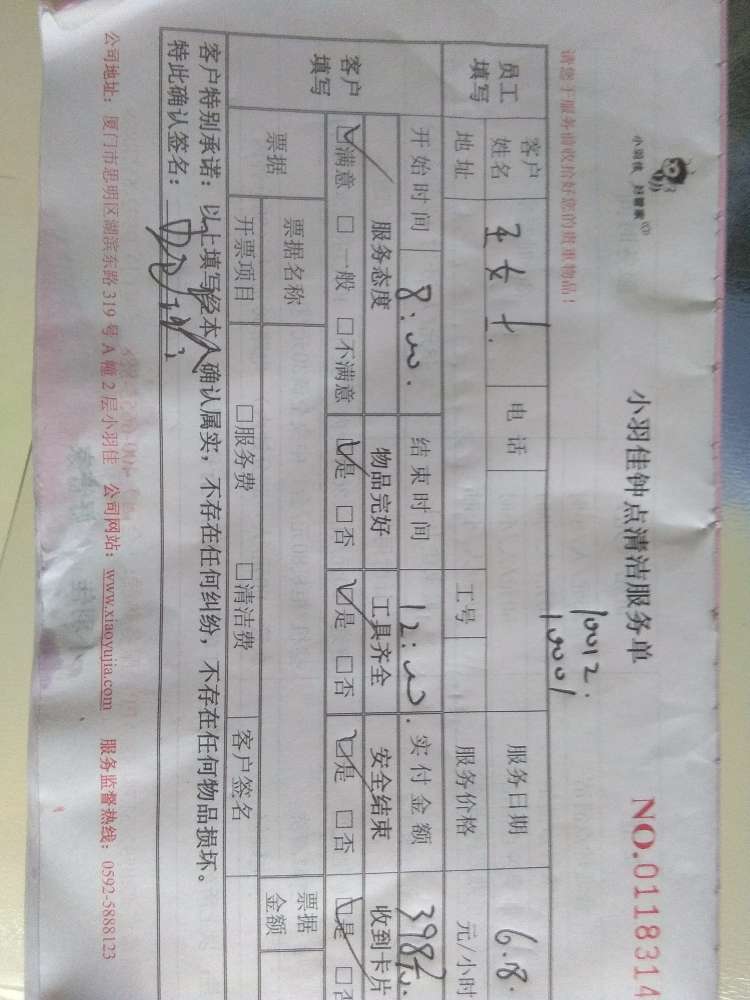 小羽佳 好管家
小羽佳钟点清洁服务单
NO.0118314
10012.
10001
请您于服务前收拾好您的贵重物品!
员工填写 客户姓名 王女士. 电话 服务日期 6.8.
地址 工号 服务价格 元/小时
开始时间 8:00. 结束时间 12:00. 实付金额 398元.
客户填写 服务态度 物品完好 工具齐全 安全结束 收到卡片
☑满意 □一般 □不满意 ☑是 □否 ☑是 □否 ☑是 □否 ☑是 □否
票据 票据名称 票据金额
开票项目 □服务费 □清洁费 客户签名
客户特别承诺:以上填写经本人确认属实,不存在任何纠纷,不存在任何物品损坏。
特此确认签名:
公司地址:厦门市思明区湖滨东路319号A幢2层小羽佳 公司网站:www.xiaoyujia.com 服务监督热线:0592-5888123